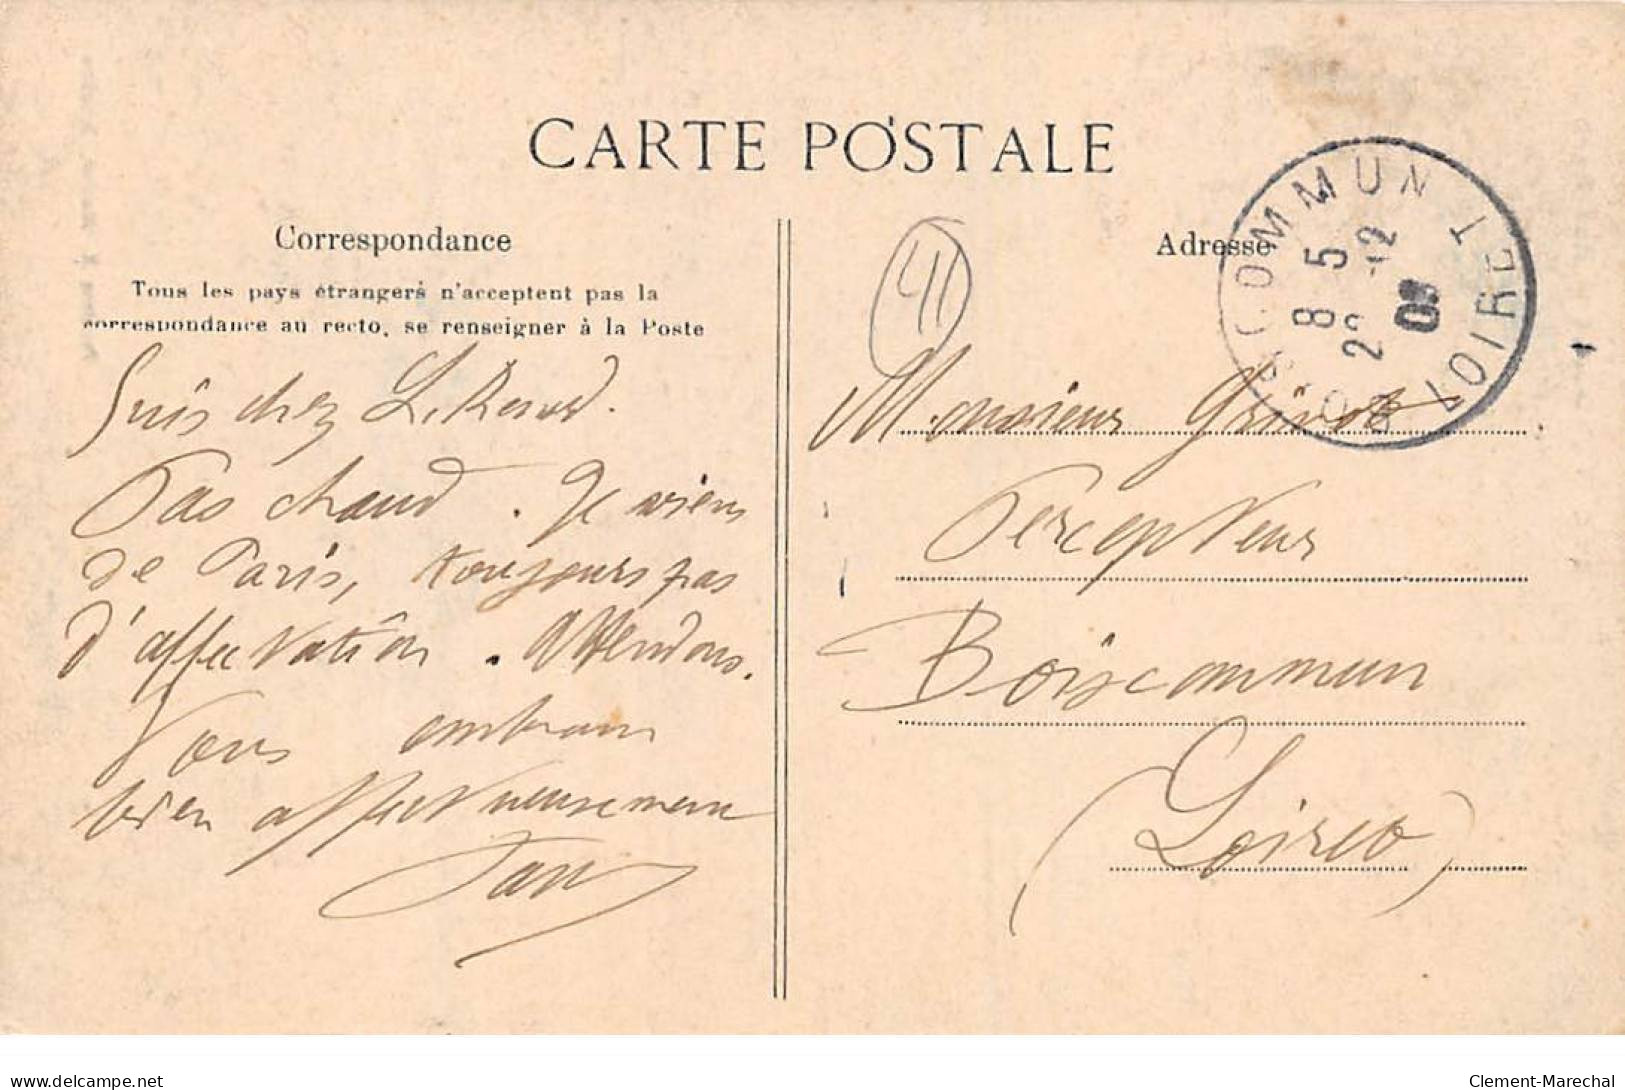 CARTE POSTALE
Correspondance
Tous les pays étrangers n'acceptent pas la
correspondance au recto, se renseigner à la Poste
Suis chez L. Renard.
Pas chaud. Je viens
de Paris, toujours pas
d'affectation. Attendons.
Vous embrasse
bien affectueusement
Adresse
41
Monsieur Grivot
Percepteur
Boiscommun
(Loiret)
BOISCOMMUN LOIRET
8 5
-12
08
delcampe.net
Clement-Marechal